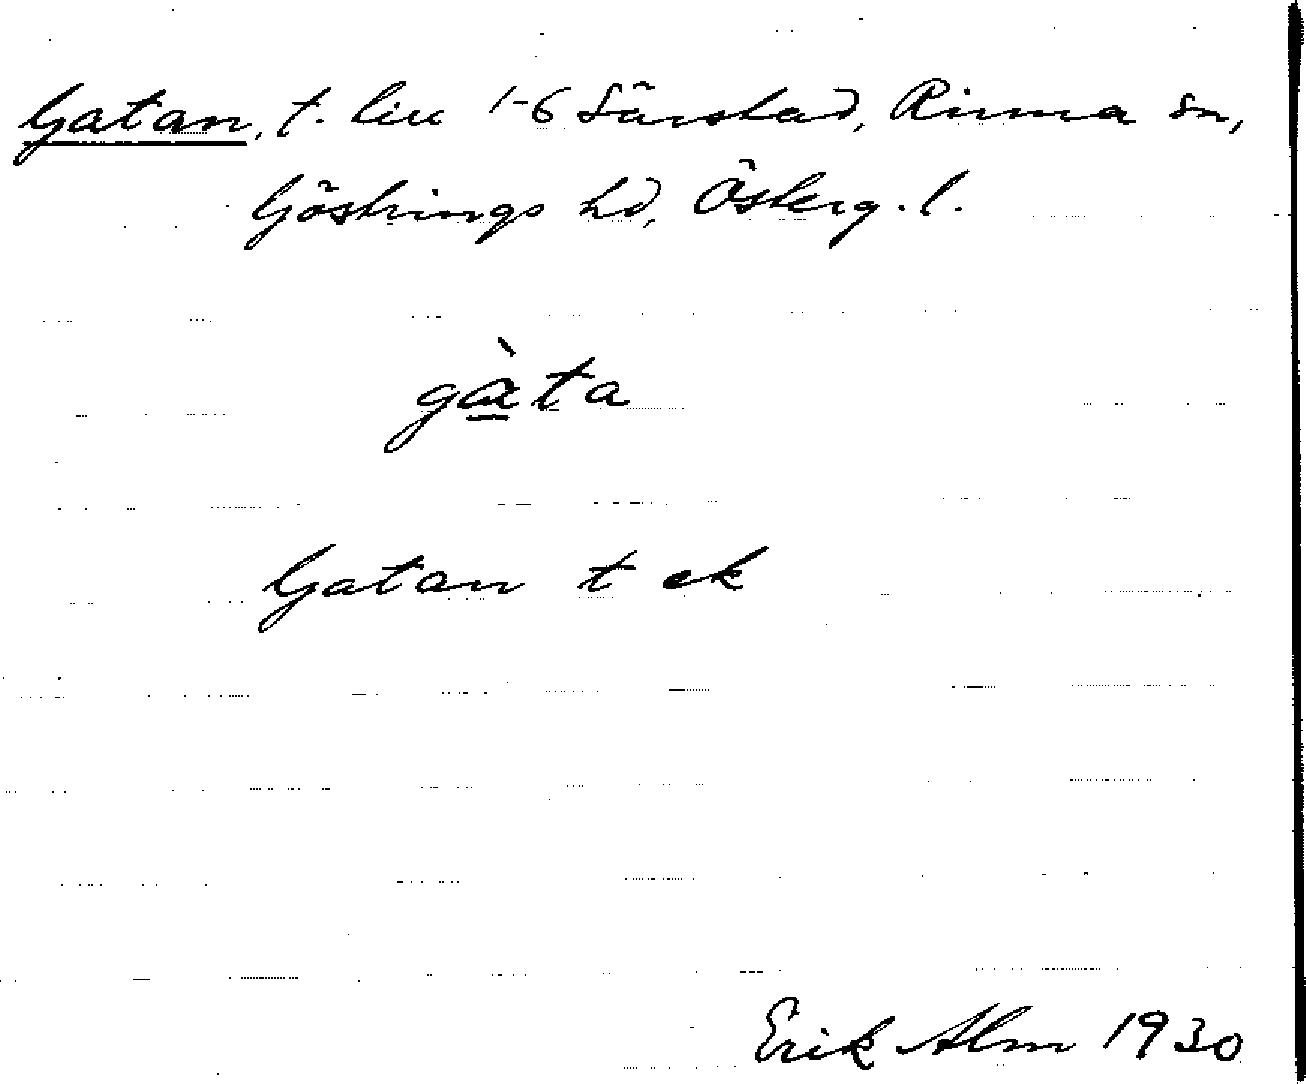 Gatan, t. liu 1-6 Särstad, Rinna sn,
Göstrings hd, Österg. l.
gàta
Gatan t ek
Erik Alm 1930